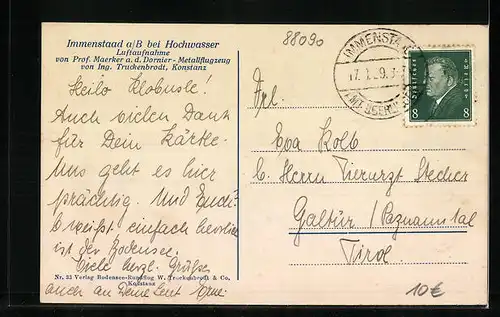 Immenstaad a/B bei Hochwasser
Luftaufnahme
von Prof. Maerker a. d. Dornier-Metallflugzeug
von Ing. Truckenbrodt, Konstanz
88090
IMMENSTA
17. 9.
8 8
Auch vielen Dank
für Dein Kärtle.
Uns geht es hier
prächtig. Und Euch?
weißt einfach herrlich
ist der Bodensee.
Viele herzl. Grüße
auch an Deine Leut
Frl.
Eva Kolb
b. Herrn Tierarzt Stecher
Galtür / Paznauntal
Tirol
Nr. 33 Verlag Bodensee-Rundflug W. Truckenbrodt & Co.
Konstanz
10€